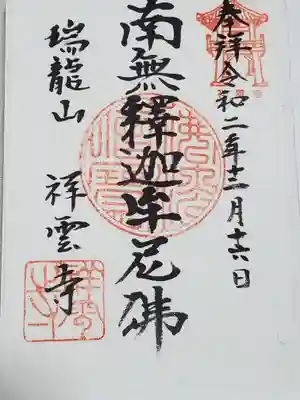 奉拝 令和二年十一月十六日
南無釋迦牟尼佛
瑞龍山 祥雲寺